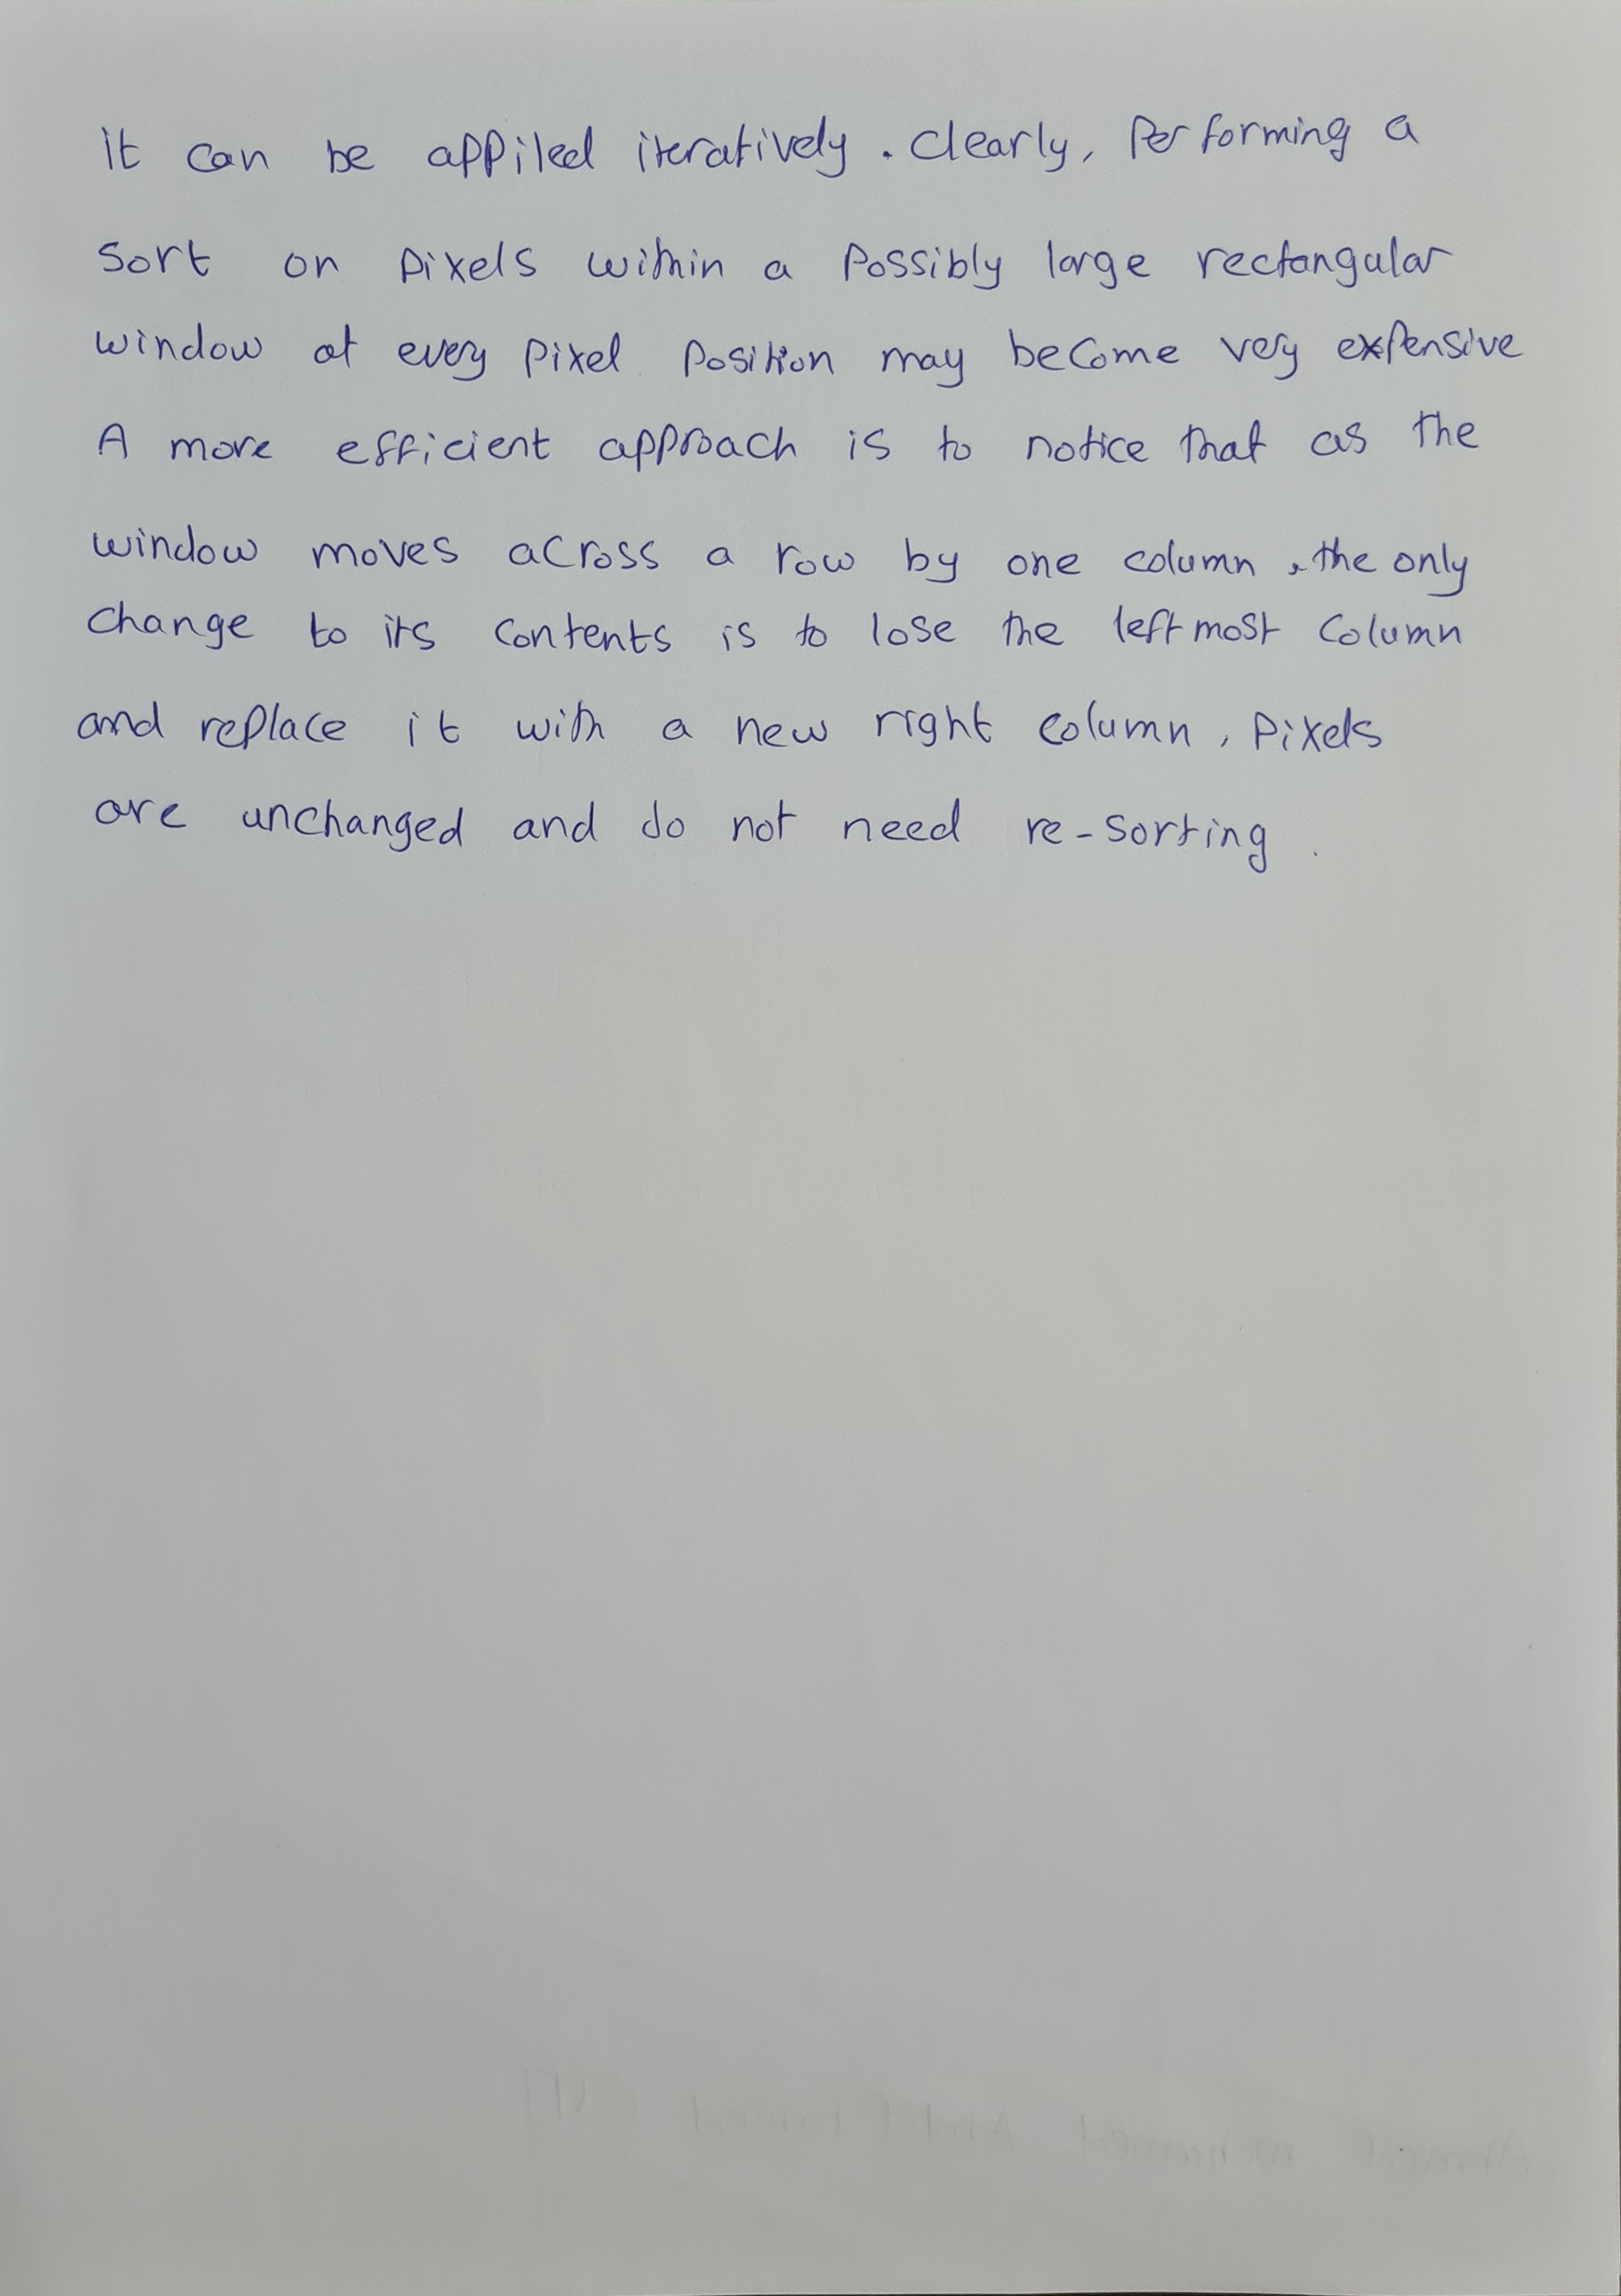 It can be appiled iteratively . Clearly, Performing a
Sort on Pixels within a Possibly large rectangular
window at every Pixel Position may become very expensive
A more efficient approach is to notice that as the
window moves across a row by one column , the only
Change to its Contents is to lose the leftmost Column
and replace it with a new right column , Pixels
are unchanged and do not need re-sorting .